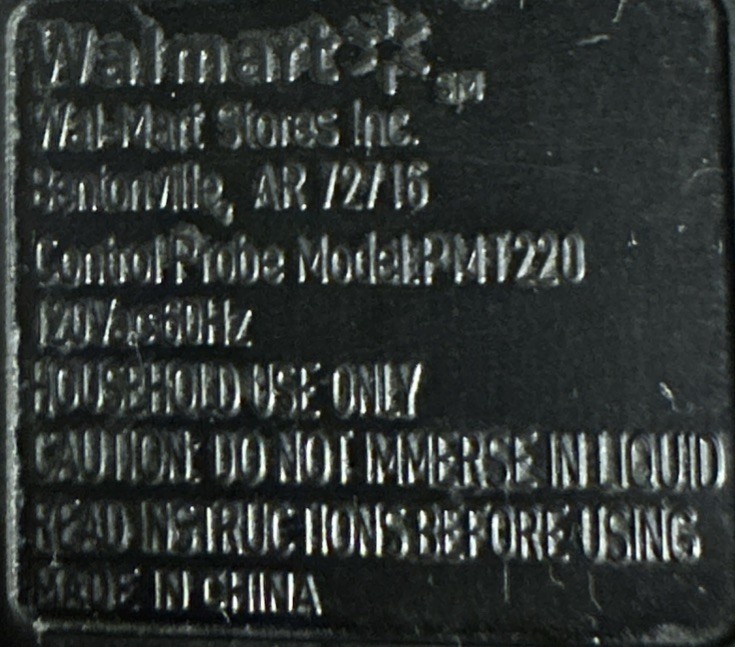 Walmart SM
Wal-Mart Stores Inc.
Bentonville, AR 72716
Control Probe Model:PMT220
120Vac60Hz
HOUSEHOLD USE ONLY
CAUTION: DO NOT IMMERSE IN LIQUID
READ INSTRUCTIONS BEFORE USING
MADE IN CHINA